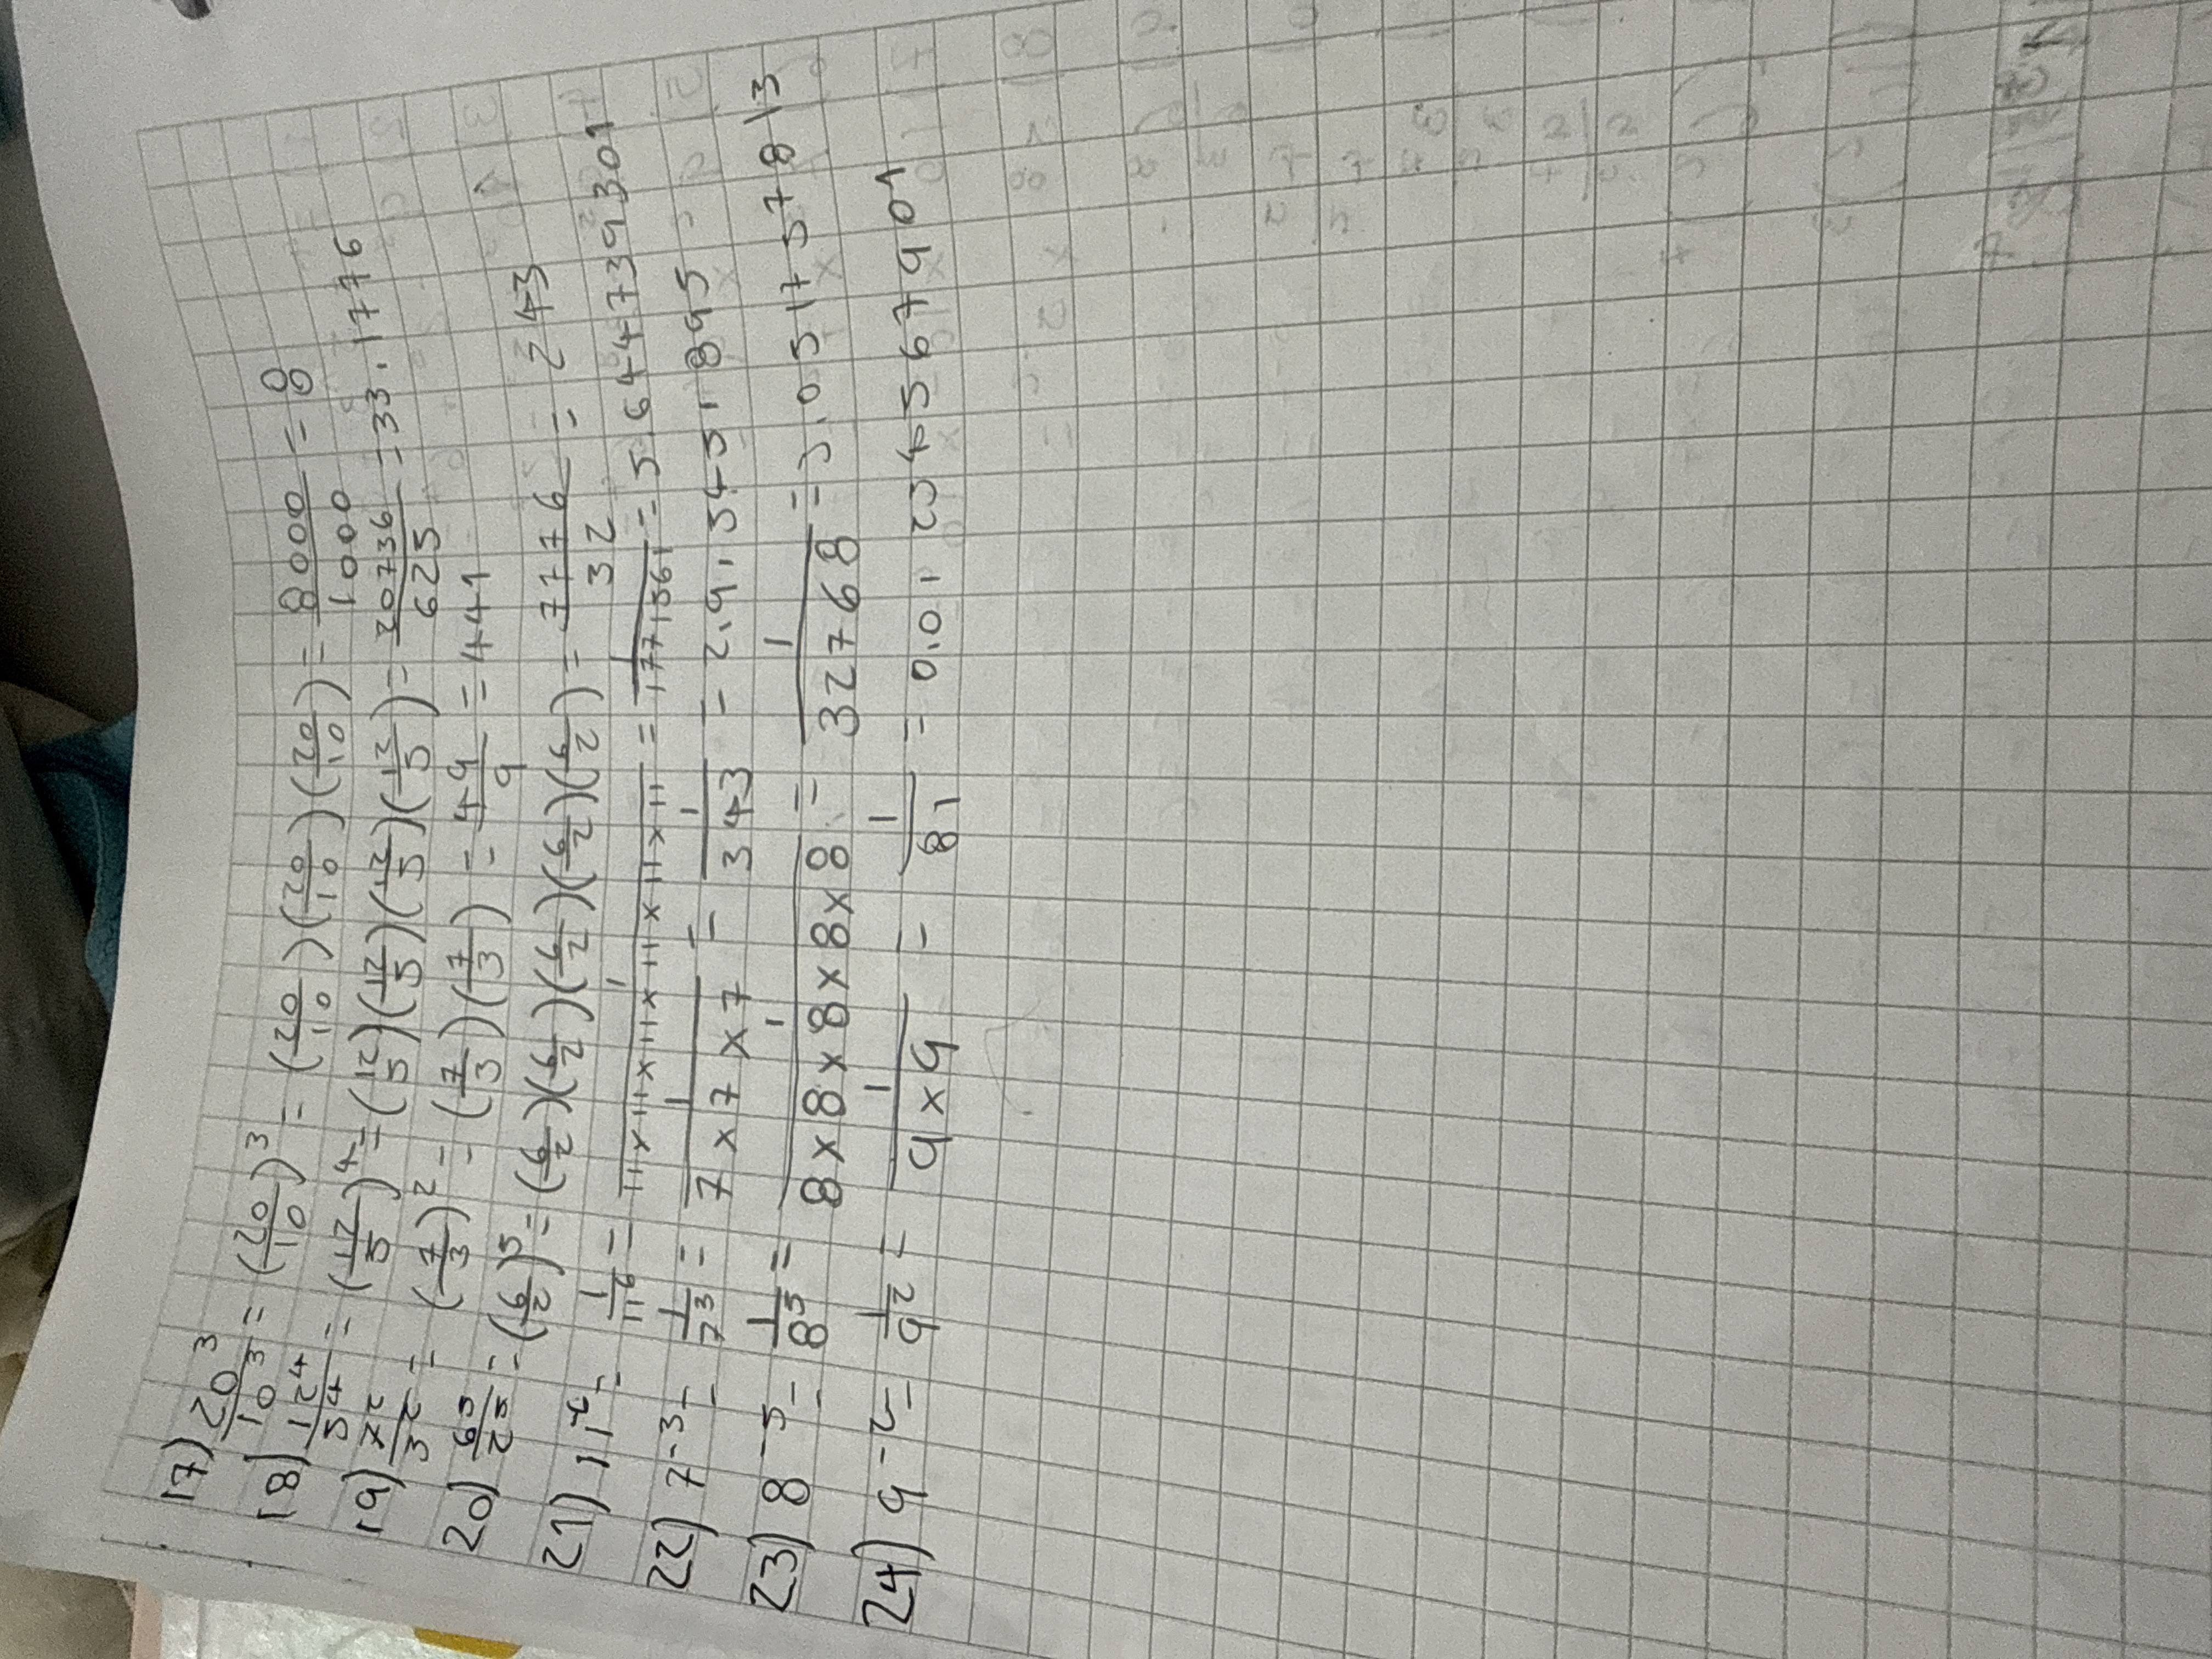 17) 20³/10³ = (20/10)³ = (20/10)(20/10)(20/10) = 8000/1000 = 8
18) 12⁴/5⁴ = (12/5)⁴ = (12/5)(12/5)(12/5)(12/5) = 20736/625 = 33.1776
19) 7²/3² = (7/3)² = (7/3)(7/3) = 49/9 = 441
20) 6⁵/2⁵ = (6/2)⁵ = (6/2)(6/2)(6/2)(6/2)(6/2) = 7776/32 = 243
21) 11⁻⁶ = 1/11⁶ = 1/11x11x11x11x11x11 = 1/1771561 = 5.644739301
22) 7⁻³ = 1/7³ = 1/7x7x7 = 1/343 = 2.915451895
23) 8⁻⁵ = 1/8⁵ = 1/8x8x8x8x8 = 1/32768 = 3.051757813
24) 9⁻² = 1/9² = 1/9x9 = 1/81 = 0.01234567901